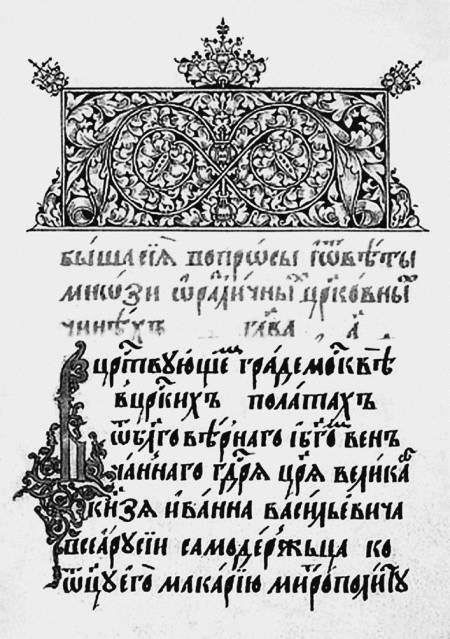 Быша сиѧ вопрѡсы и ѿвѣты
мнѡзи ѡ разли́чны црко́вны
чинѣ́хъ глава̀ а҃
В црⷭ҇твующеⷨ гра́де москвѣ̀
в црⷭ҇кихъ пола́тах
ѿ бл҃гове́рнаго и бг҃оⷨ вен
ча́ннаго гдⷭ҇рѧ цр҃ѧ вели́каⷢ҇
кн҃зѧ ива́нна васи́льевича
всеѧ̀ ру́сїи самоде́ржьца ко
ѿц҃у̀ его̀ мака́рїю митрополи́ту